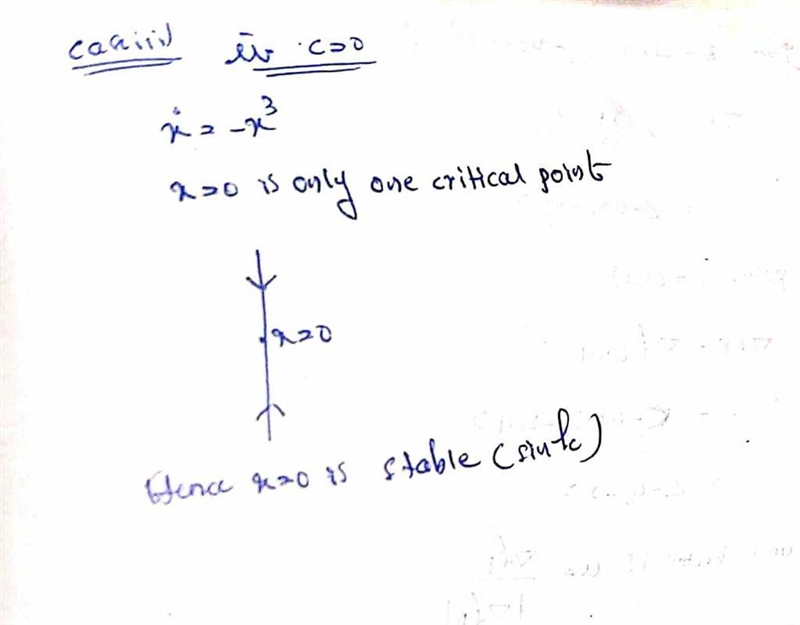 c=0
ẋ = -x³
x=0 is only one critical point
x=0
Hence x=0 is stable (sink)